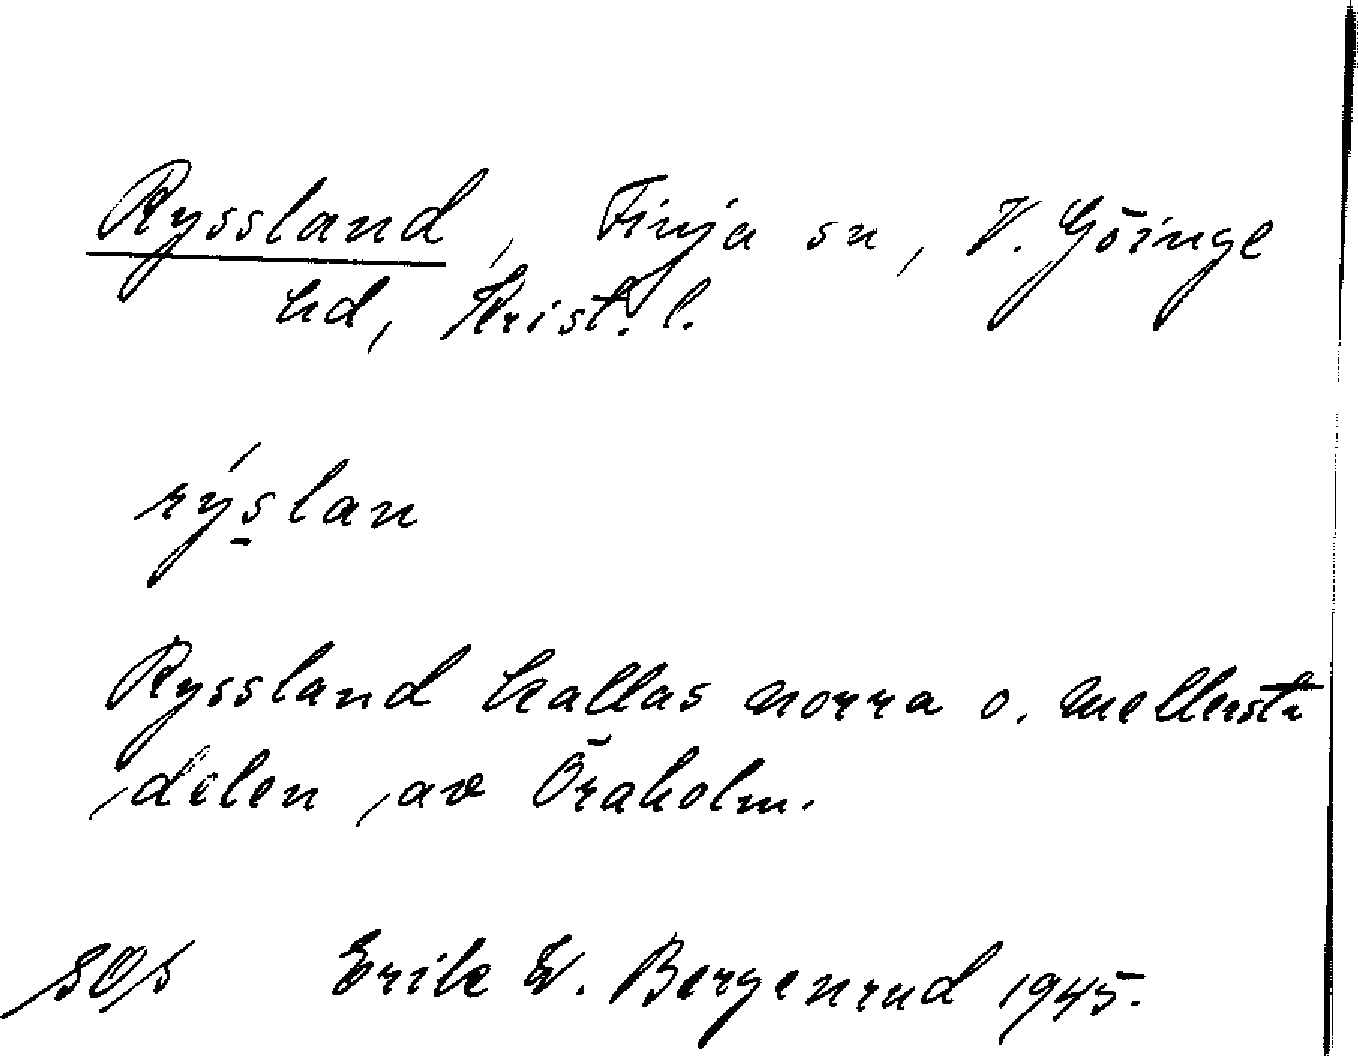 Ryssland, Finja sn, V. Göinge
hd, Krist. l.
rýs̱lan
Ryssland kallas norra o. mellersta
delen av Öraholm.
Erik W. Bergenrud 1945.